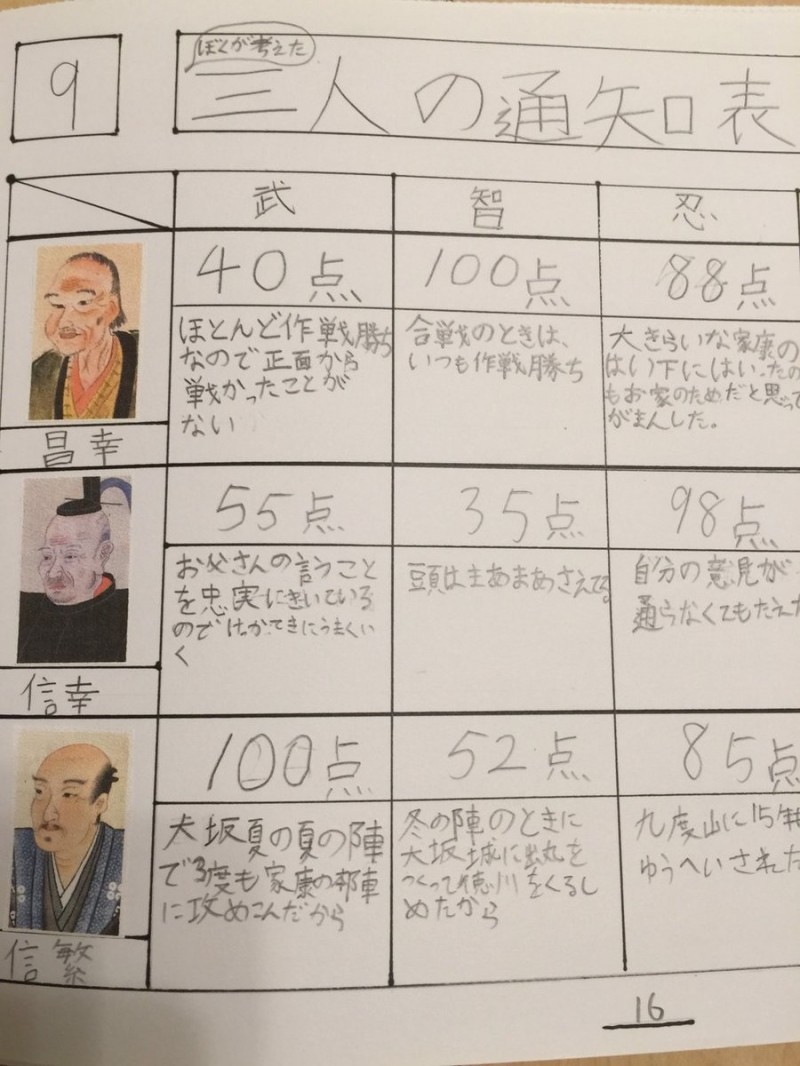 9
ぼくが考えた
三人の通知表
武
智
忍
昌幸
40点
ほとんど作戦勝ち
なので正面から
戦かったことが
ない
100点
合戦のときは、
いつも作戦勝ち
88点
大きらいな家康の
はい下にはいったの
もお家のためだと思って
がまんした。
信幸
55点
お父さんの言うこと
を忠実にきいている
のでけっかてきにうまくい
く
35点
頭はまあまあさえてる。
98点
自分の意見が
通らなくてもたえた
信繁
100点
大坂夏の夏の陣
で3度も家康の本陣
に攻めこんだから
52点
冬の陣のときに
大坂城に出丸を
つくって徳川をくるし
めたから
85点
九度山に15年
ゆうへいされた
16